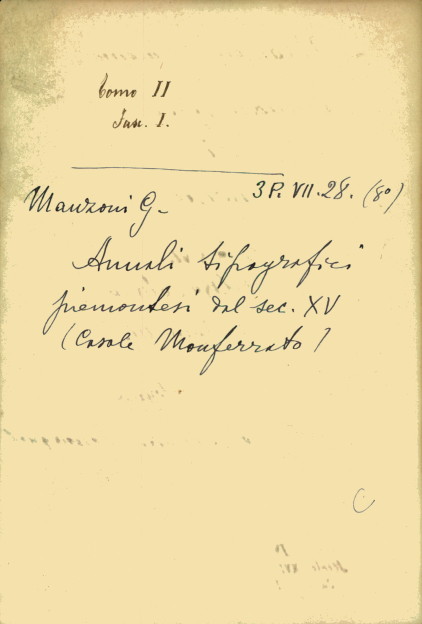 Tomo II
Fasc. I.
3 P. VII. 28. (8°)
Manzoni G.
Annali tipografici
piemontesi dal sec. XV
(Casale Monferrato)